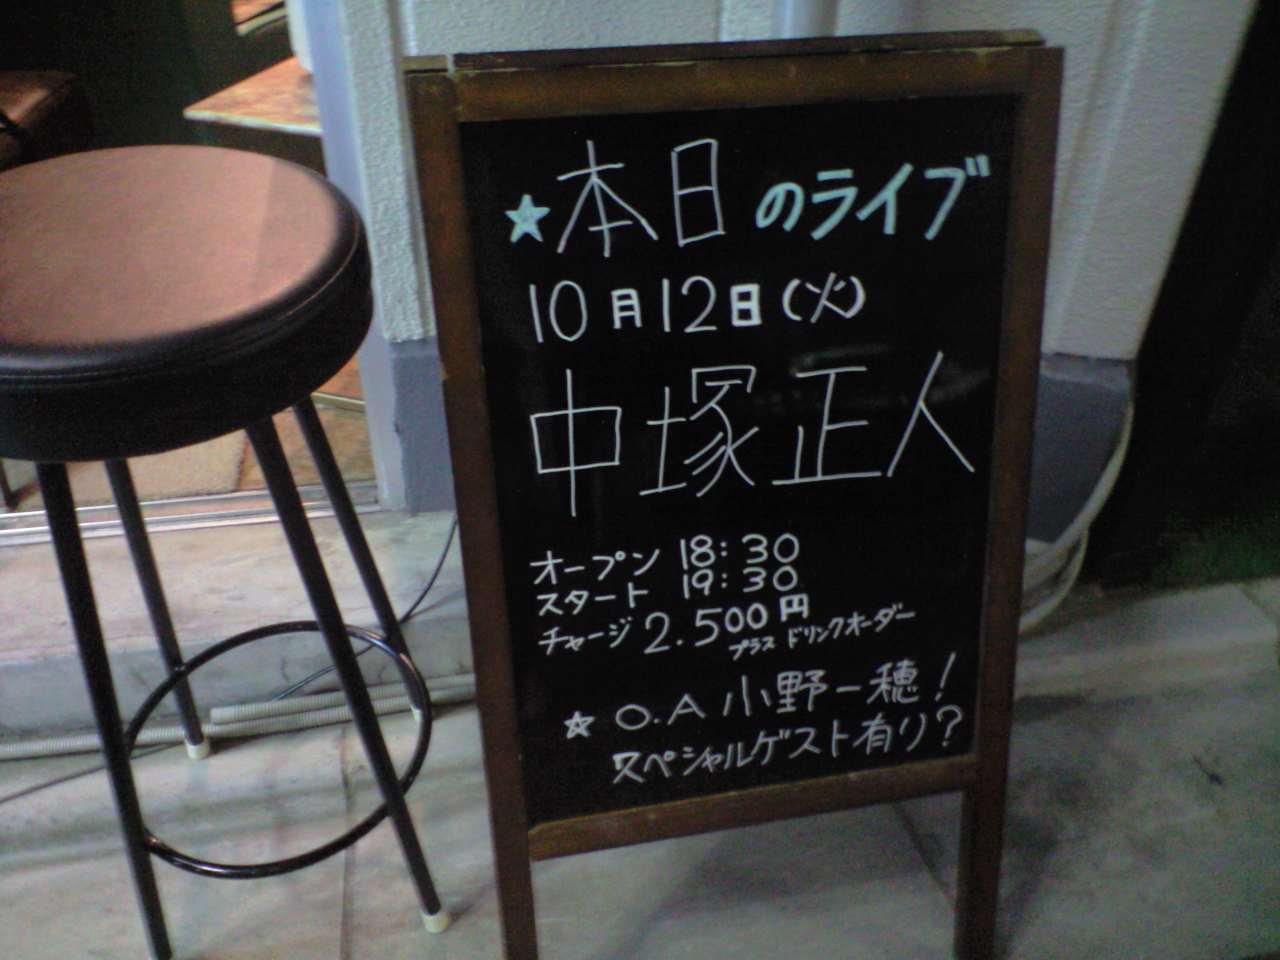 ★本日のライブ
10月12日(火)
中塚正人
オープン 18:30
スタート 19:30
チャージ 2.500円
プラス ドリンクオーダー
☆ O.A 小野一穂!
スペシャルゲスト有り?